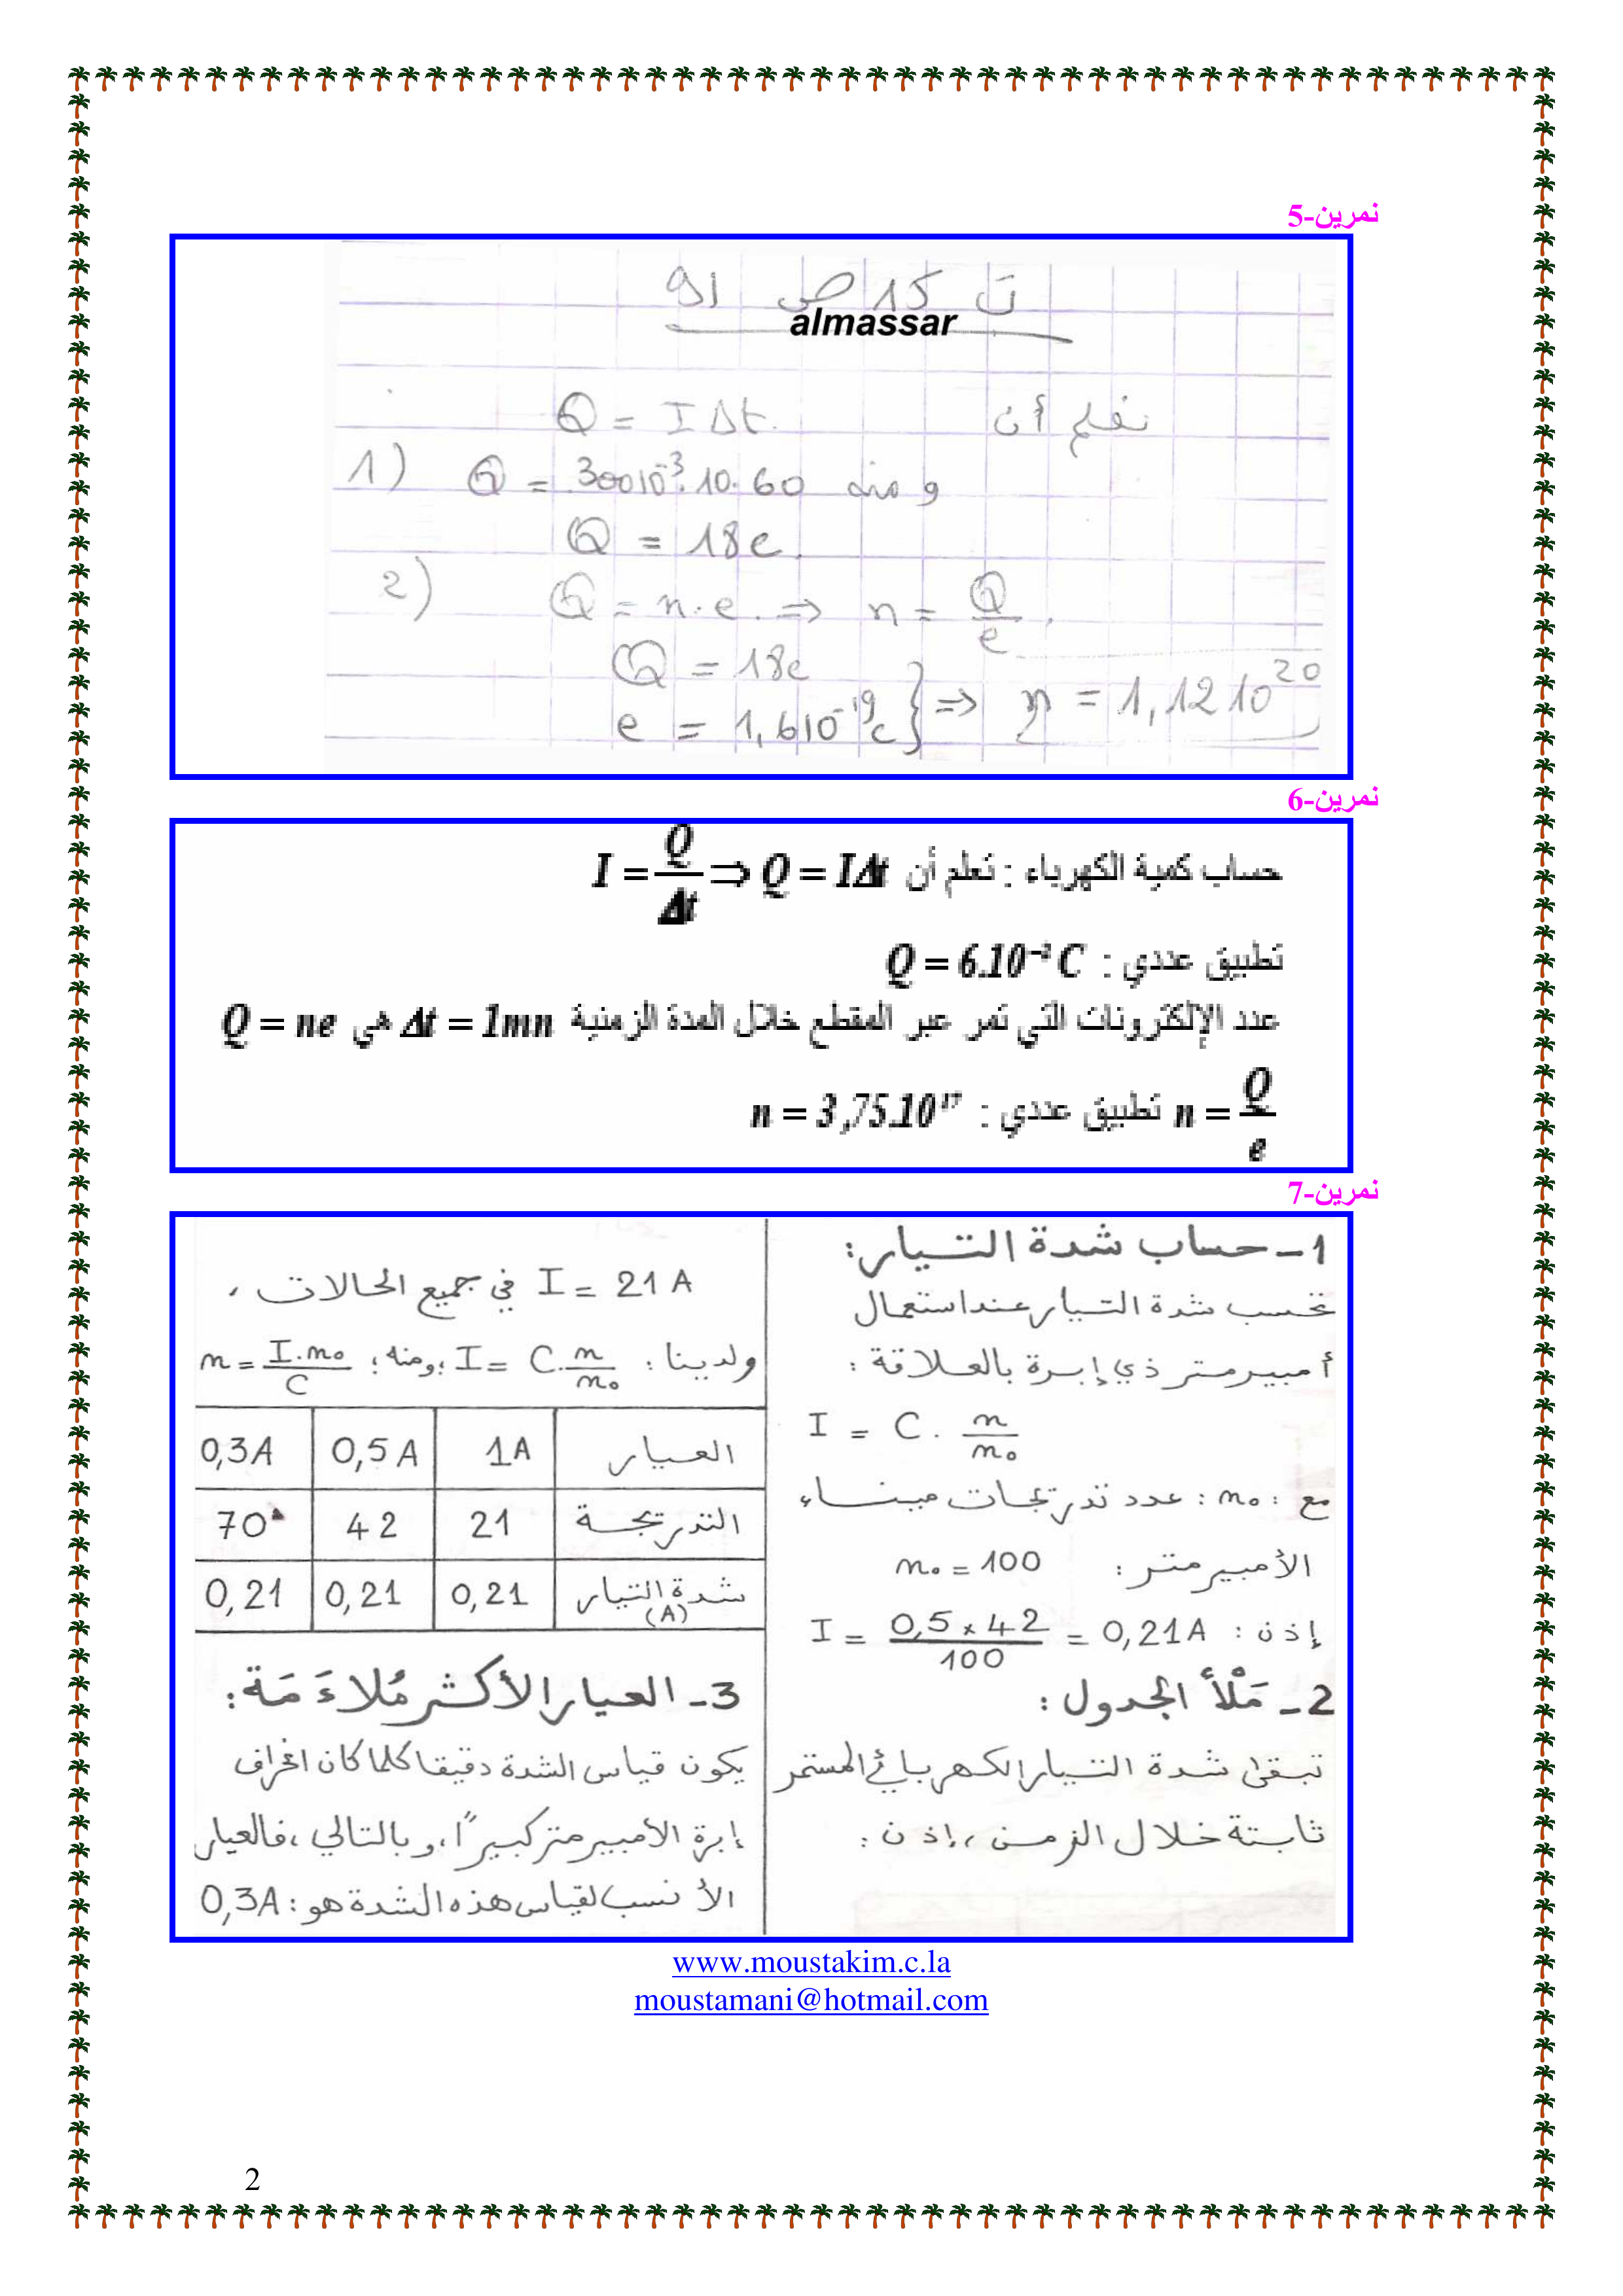 تمرين-5
ت 15 ص 91
almassar
نعلم أن Q = I Δt.
1) ومنه Q = 300 10⁻³. 10. 60
Q = 18c.
2) Q = n. e. ⇒ n = Q/e.
Q = 18c
e = 1,6 10⁻¹⁹c } ⇒ n = 1,12 10²⁰
تمرين-6
حساب كمية الكهرباء : نعلم أن I = Q/Δt ⇒ Q = IΔt
تطبيق عددي : Q = 6.10⁻² C
عدد الإلكترونات التي تمر عبر المقطع خلال المدة الزمنية Δt = 1mn هي Q = ne
n = Q/e تطبيق عددي : n = 3,75.10¹⁷
تمرين-7
1- حساب شدة التيار:
نحسب شدة التيار عند استعمال
أمبيرمتر ذي إبرة بالعلاقة :
I = C . n/n₀
مع : n₀ : عدد تدريجات ميناء
الأمبيرمتر : n₀ = 100
إذن : I = 0,5 × 42/100 = 0,21A
2- مَلْأ الجدول :
تبقى شدة التيار الكهربائي المستمر
ثابتة خلال الزمن ، إذن :
I = 21 A في جميع الحالات ،
ولدينا : I = C.n/n₀ ؛ ومنه ؛ n = I.n₀/C
العيار 1A 0,5A 0,3A
التدريجة 21 42 70
شدة التيار (A) 0,21 0,21 0,21
3- العيار الأكثر مُلاءَمَة :
يكون قياس الشدة دقيقا كلما كان انحراف
إبرة الأمبيرمتر كبيرًا ، وبالتالي ، فالعيار
الأنسب لقياس هذه الشدة هو : 0,3A
www.moustakim.c.la
moustamani@hotmail.com
2